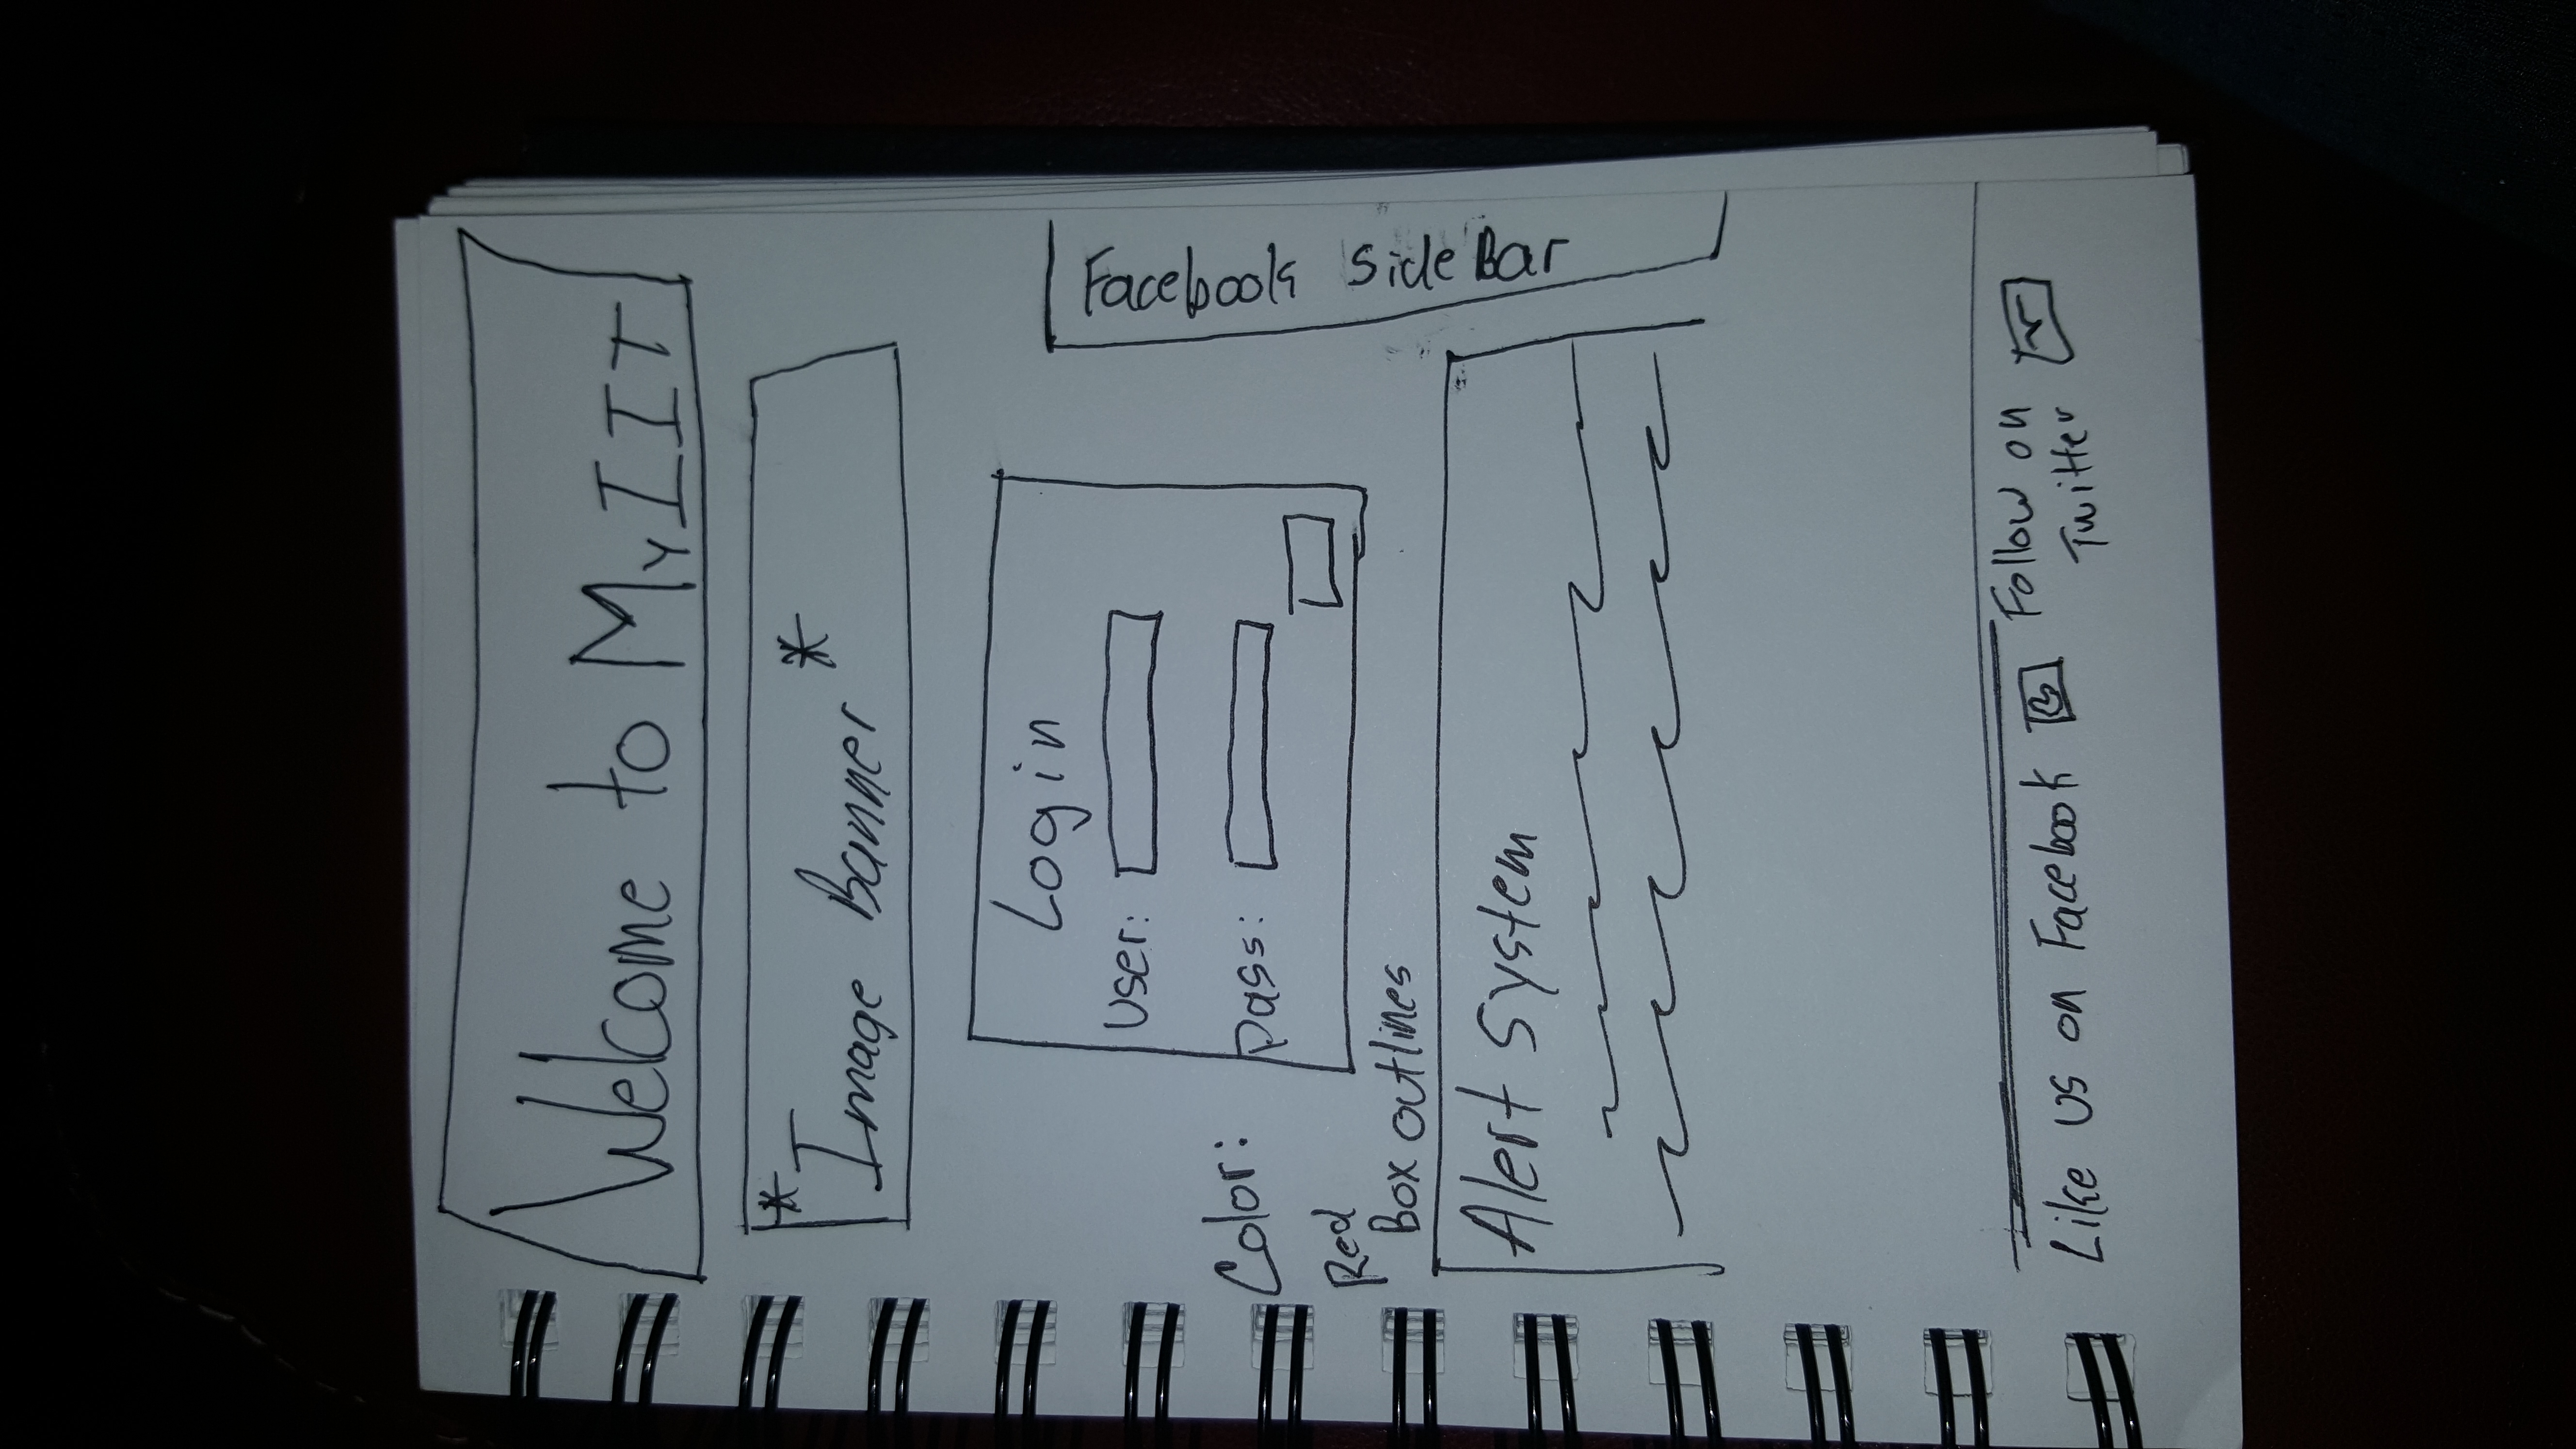 Welcome to MyIIT
*Image Banner*
Login
User:
Pass:
Color:
Red
Box outlines
Facebook Side Bar
Alert System
Like us on Facebook
Follow on
Twitter